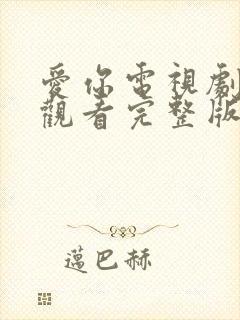 愛你電視劇
觀看完整版
邁巴赫